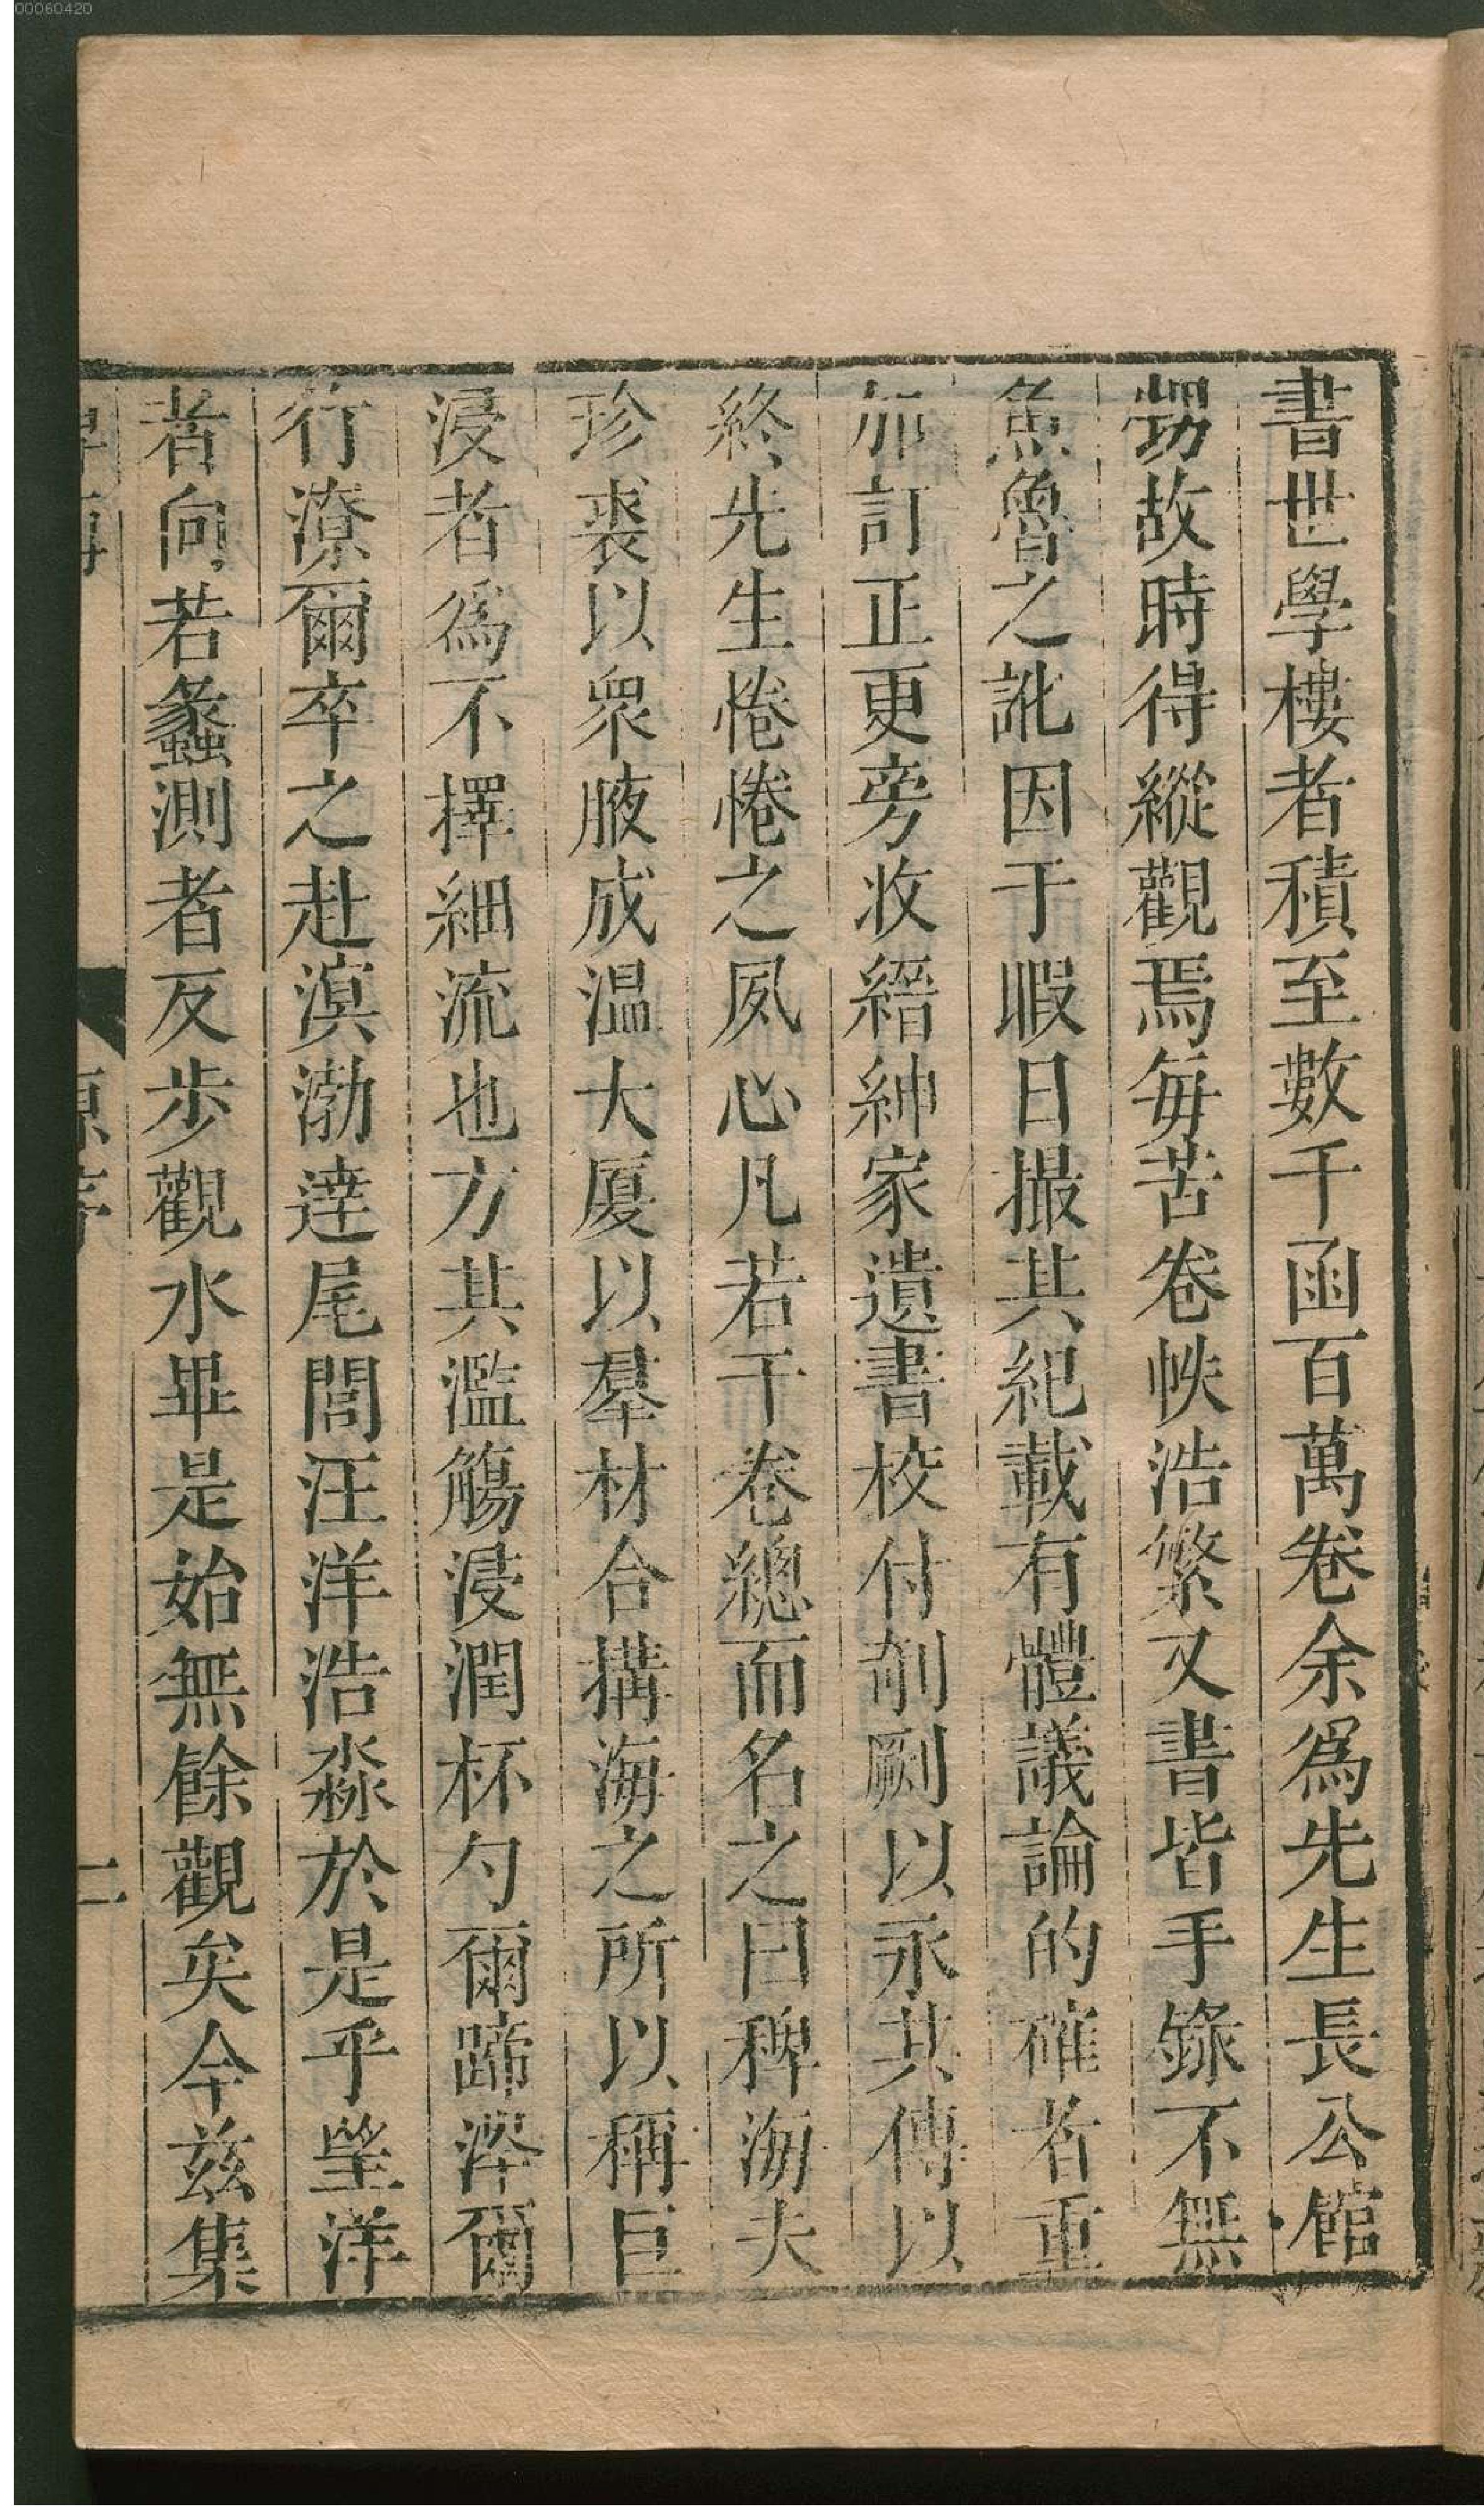 書世學樓者積至數千函百萬卷余爲先生長公館
甥故時得縱觀焉每苦卷帙浩繁又書皆手錄不無
魚魯之訛因于暇日撮其紀載有體議論的確者重
加訂正更旁收縉紳家遺書校付剞劂以永其傳以
終先生惓惓之夙心凡若干卷總而名之曰稗海夫
珍裘以衆腋成温大厦以羣材合搆海之所以稱巨
浸者爲不擇細流也方其濫觴浸潤杯勺爾蹄涔爾
行潦爾卒之赴溟渤達尾閭汪洋浩淼於是乎望洋
者向若蠡測者反步觀水畢是始無餘觀矣今兹集
二
00060420